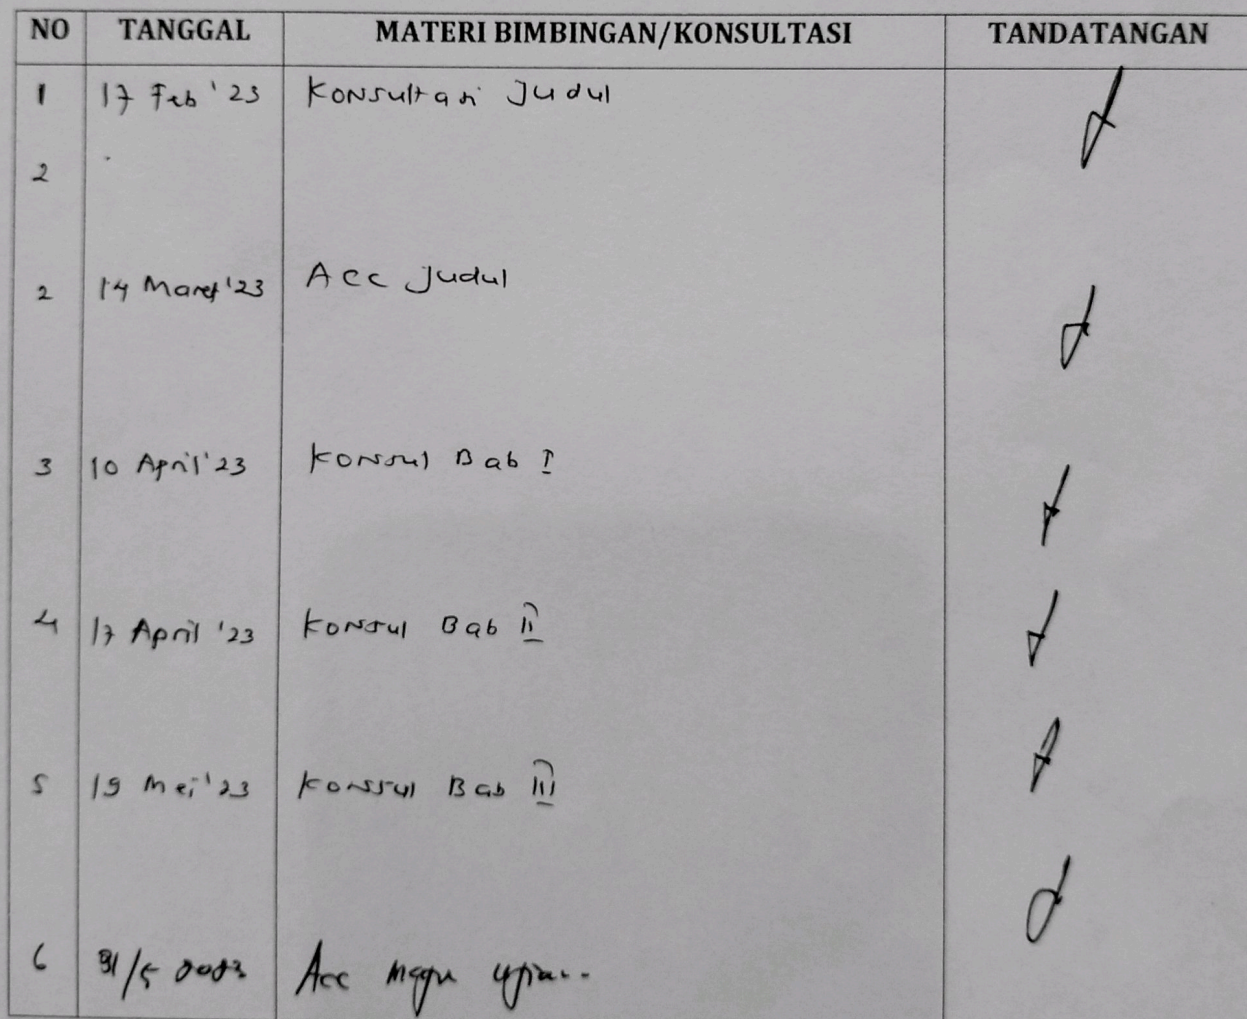 NO TANGGAL MATERI BIMBINGAN/KONSULTASI TANDATANGAN
1 17 Feb '23 Konsultasi Judul
2
2 14 Maret '23 Acc Judul
3 10 April '23 Konsul Bab I
4 17 April '23 Konsul Bab II
5 19 Mei '23 Konsul Bab III
6 31/5 2023 Acc maju ujian